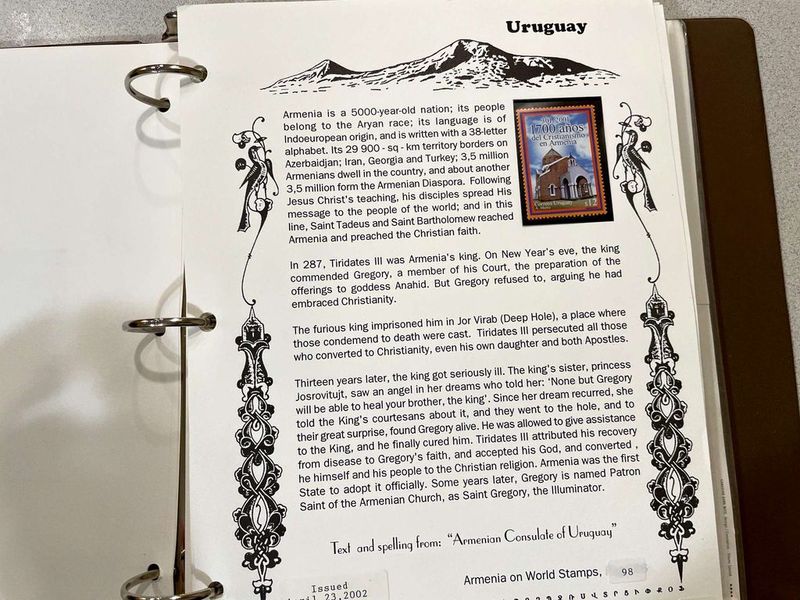 Uruguay
Armenia is a 5000-year-old nation; its people
belong to the Aryan race; its language is of
Indoeuropean origin, and is written with a 38-letter
alphabet. Its 29 900 - sq - km territory borders on
Azerbaidjan; Iran, Georgia and Turkey; 3,5 million
Armenians dwell in the country, and about another
3,5 million form the Armenian Diaspora. Following
Jesus Christ's teaching, his disciples spread His
message to the people of the world; and in this
line, Saint Tadeus and Saint Bartholomew reached
Armenia and preached the Christian faith.
1700 años
del Cristianismo
en Armenia
Correos Uruguay
$12
In 287, Tiridates III was Armenia's king. On New Year's eve, the king
commended Gregory, a member of his Court, the preparation of the
offerings to goddess Anahid. But Gregory refused to, arguing he had
embraced Christianity.
The furious king imprisoned him in Jor Virab (Deep Hole), a place where
those condemend to death were cast. Tiridates III persecuted all those
who converted to Christianity, even his own daughter and both Apostles.
Thirteen years later, the king got seriously ill. The king's sister, princess
Josrovitujt, saw an angel in her dreams who told her: 'None but Gregory
will be able to heal your brother, the king'. Since her dream recurred, she
told the King's courtesans about it, and they went to the hole, and to
their great surprise, found Gregory alive. He was allowed to give assistance
to the King, and he finally cured him. Tiridates III attributed his recovery
from disease to Gregory's faith, and accepted his God, and converted ,
he himself and his people to the Christian religion. Armenia was the first
State to adopt it officially. Some years later, Gregory is named Patron
Saint of the Armenian Church, as Saint Gregory, the Illuminator.
Text and spelling from: "Armenian Consulate of Uruguay"
Issued
April 23,2002
Armenia on World Stamps, 98